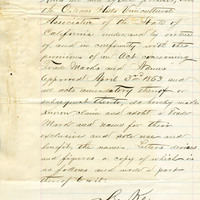 the Orange Hills Vinicultural
Association of the State of
California under and by virtue
of, and in conformity with the
provisions of an Act concerning
Trade Marks and Names
approved April 3rd 1863 and
all acts amendatory thereof or
subsequent thereto, do hereby make
known claim and adopt a Trade
Mark and name for their
exclusive and sole use and
benefit, the names, letters devices
and figures a copy of which is
as follows and made a part
thereof to wit: